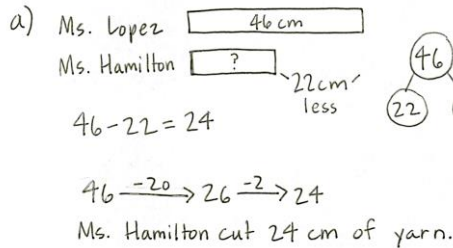 a) Ms. Lopez 46 cm
Ms. Hamilton ?
22cm less
46
22
46-22=24
46 -20→ 26 -2→ 24
Ms. Hamilton cut 24 cm of yarn.